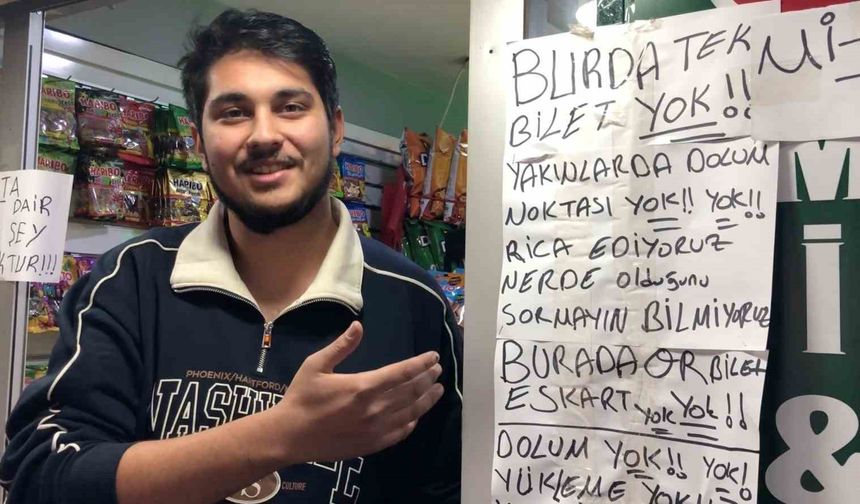 BURDA TEK
BİLET YOK!!
YAKINLARDA DOLUM
NOKTASI YOK!! YOK!!
RİCA EDİYORUZ
NERDE olduğunu
SORMAYIN BİLMİYORUZ
BURADA OR BİLET
ESKART YOK YOK!!
DOLUM YOK!! YOK!
YÜKLEME YOK!
Mİ-
M
İ
&
TA
DAİR
ŞEY
KTUR!!!
HARIBO
HARIBO
HARIBO
HARIBO
PHOENIX/HARTFORD/
NASHV
CULTURE